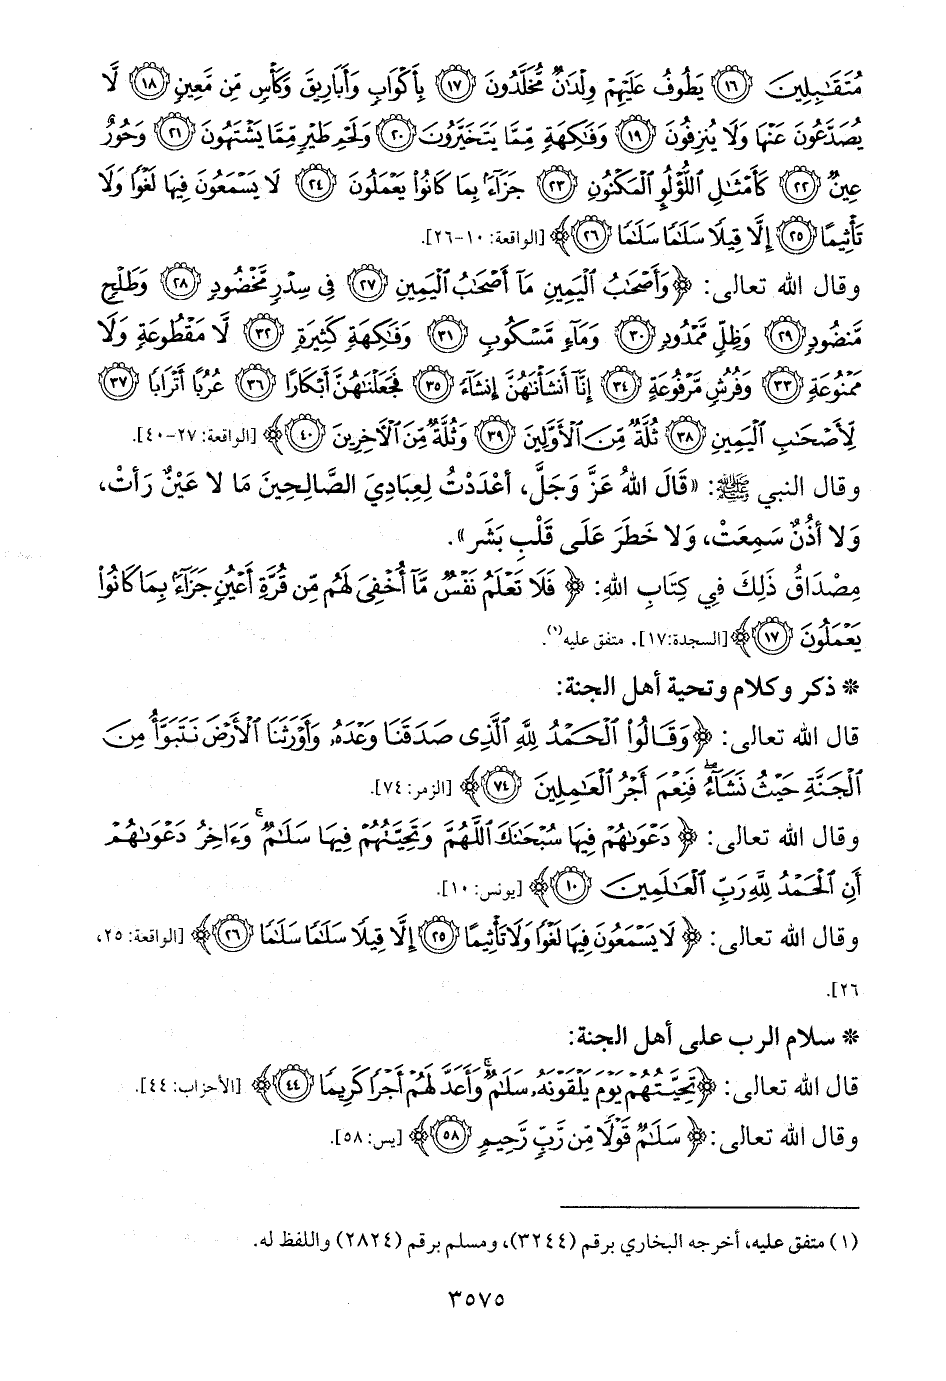 مُتَقَـٰبِلِينَ ﴿١٦﴾ يَطُوفُ عَلَيْهِمْ وِلْدَٰنٌ مُّخَلَّدُونَ ﴿١٧﴾ بِأَكْوَابٍ وَأَبَارِيقَ وَكَأْسٍ مِّن مَّعِينٍ ﴿١٨﴾ لَّا
يُصَدَّعُونَ عَنْهَا وَلَا يُنزِفُونَ ﴿١٩﴾ وَفَـٰكِهَةٍ مِّمَّا يَتَخَيَّرُونَ ﴿٢٠﴾ وَلَحْمِ طَيْرٍ مِّمَّا يَشْتَهُونَ ﴿٢١﴾ وَحُورٌ
عِينٌ ﴿٢٢﴾ كَأَمْثَـٰلِ ٱللُّؤْلُؤِ ٱلْمَكْنُونِ ﴿٢٣﴾ جَزَآءًۢ بِمَا كَانُوا۟ يَعْمَلُونَ ﴿٢٤﴾ لَا يَسْمَعُونَ فِيهَا لَغْوًا وَلَا
تَأْثِيمًا ﴿٢٥﴾ إِلَّا قِيلًا سَلَـٰمًا سَلَـٰمًا ﴿٢٦﴾﴾ [الواقعة: ١٠-٢٦].
وقال الله تعالى: ﴿وَأَصْحَـٰبُ ٱلْيَمِينِ مَآ أَصْحَـٰبُ ٱلْيَمِينِ ﴿٢٧﴾ فِى سِدْرٍ مَّخْضُودٍ ﴿٢٨﴾ وَطَلْحٍ
مَّنضُودٍ ﴿٢٩﴾ وَظِلٍّ مَّمْدُودٍ ﴿٣٠﴾ وَمَآءٍ مَّسْكُوبٍ ﴿٣١﴾ وَفَـٰكِهَةٍ كَثِيرَةٍ ﴿٣٢﴾ لَّا مَقْطُوعَةٍ وَلَا
مَمْنُوعَةٍ ﴿٣٣﴾ وَفُرُشٍ مَّرْفُوعَةٍ ﴿٣٤﴾ إِنَّآ أَنشَأْنَـٰهُنَّ إِنشَآءً ﴿٣٥﴾ فَجَعَلْنَـٰهُنَّ أَبْكَارًا ﴿٣٦﴾ عُرُبًا أَتْرَابًا ﴿٣٧﴾
لِّأَصْحَـٰبِ ٱلْيَمِينِ ﴿٣٨﴾ ثُلَّةٌ مِّنَ ٱلْأَوَّلِينَ ﴿٣٩﴾ وَثُلَّةٌ مِّنَ ٱلْآخِرِينَ ﴿٤٠﴾﴾ [الواقعة: ٢٧-٤٠].
وقال النبي ﷺ: «قَالَ اللهُ عَزَّ وَجَلَّ، أعْدَدْتُ لِعِبَادِيَ الصَّالِحِينَ مَا لا عَيْنٌ رَأتْ،
وَلا أذُنٌ سَمِعَتْ، وَلا خَطَرَ عَلَى قَلْبِ بَشَرٍ».
مِصْدَاقُ ذَلِكَ فِي كِتَابِ اللهِ: ﴿فَلَا تَعْلَمُ نَفْسٌ مَّآ أُخْفِىَ لَهُم مِّن قُرَّةِ أَعْيُنٍ جَزَآءًۢ بِمَا كَانُوا۟
يَعْمَلُونَ ﴿١٧﴾﴾ [السجدة: ١٧]. متفق عليه(١).
* ذكر وكلام وتحية أهل الجنة:
قال الله تعالى: ﴿وَقَالُوا۟ ٱلْحَمْدُ لِلَّهِ ٱلَّذِى صَدَقَنَا وَعْدَهُۥ وَأَوْرَثَنَا ٱلْأَرْضَ نَتَبَوَّأُ مِنَ
ٱلْجَنَّةِ حَيْثُ نَشَآءُ ۖ فَنِعْمَ أَجْرُ ٱلْعَـٰمِلِينَ ﴿٧٤﴾﴾ [الزمر: ٧٤].
وقال الله تعالى: ﴿دَعْوَىٰهُمْ فِيهَا سُبْحَـٰنَكَ ٱللَّهُمَّ وَتَحِيَّتُهُمْ فِيهَا سَلَـٰمٌ ۚ وَءَاخِرُ دَعْوَىٰهُمْ
أَنِ ٱلْحَمْدُ لِلَّهِ رَبِّ ٱلْعَـٰلَمِينَ ﴿١٠﴾﴾ [يونس: ١٠].
وقال الله تعالى: ﴿لَا يَسْمَعُونَ فِيهَا لَغْوًا وَلَا تَأْثِيمًا ﴿٢٥﴾ إِلَّا قِيلًا سَلَـٰمًا سَلَـٰمًا ﴿٢٦﴾﴾ [الواقعة: ٢٥،
٢٦].
* سلام الرب على أهل الجنة:
قال الله تعالى: ﴿تَحِيَّتُهُمْ يَوْمَ يَلْقَوْنَهُۥ سَلَـٰمٌ ۚ وَأَعَدَّ لَهُمْ أَجْرًا كَرِيمًا ﴿٤٤﴾﴾ [الأحزاب: ٤٤].
وقال الله تعالى: ﴿سَلَـٰمٌ قَوْلًا مِّن رَّبٍّ رَّحِيمٍ ﴿٥٨﴾﴾ [يس: ٥٨].
(١) متفق عليه، أخرجه البخاري برقم (٣٢٤٤)، ومسلم برقم (٢٨٢٤) واللفظ له.
٣٥٧٥